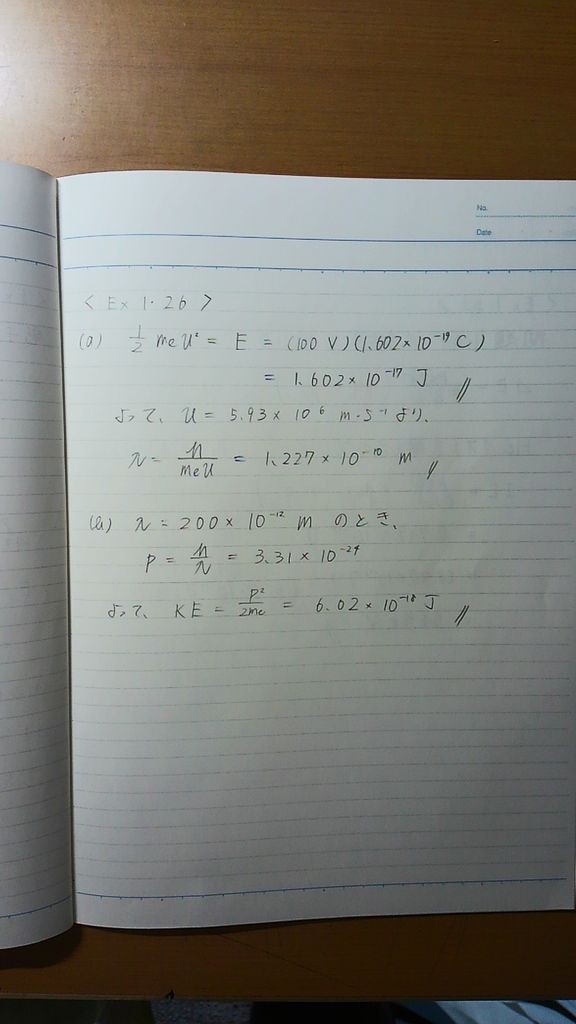 No.
Date
< Ex 1.26 >
(a) 1/2 meU² = E = (100 V)(1.602×10⁻¹⁹ C)
= 1.602×10⁻¹⁷ J //
よって、 U = 5.93×10⁶ m·s⁻¹ より、
λ = h/meU = 1.227×10⁻¹⁰ m //
(b) λ = 200×10⁻¹² m のとき、
P = h/λ = 3.31×10⁻²⁴
よって、 KE = P²/2me = 6.02×10⁻¹⁸ J //